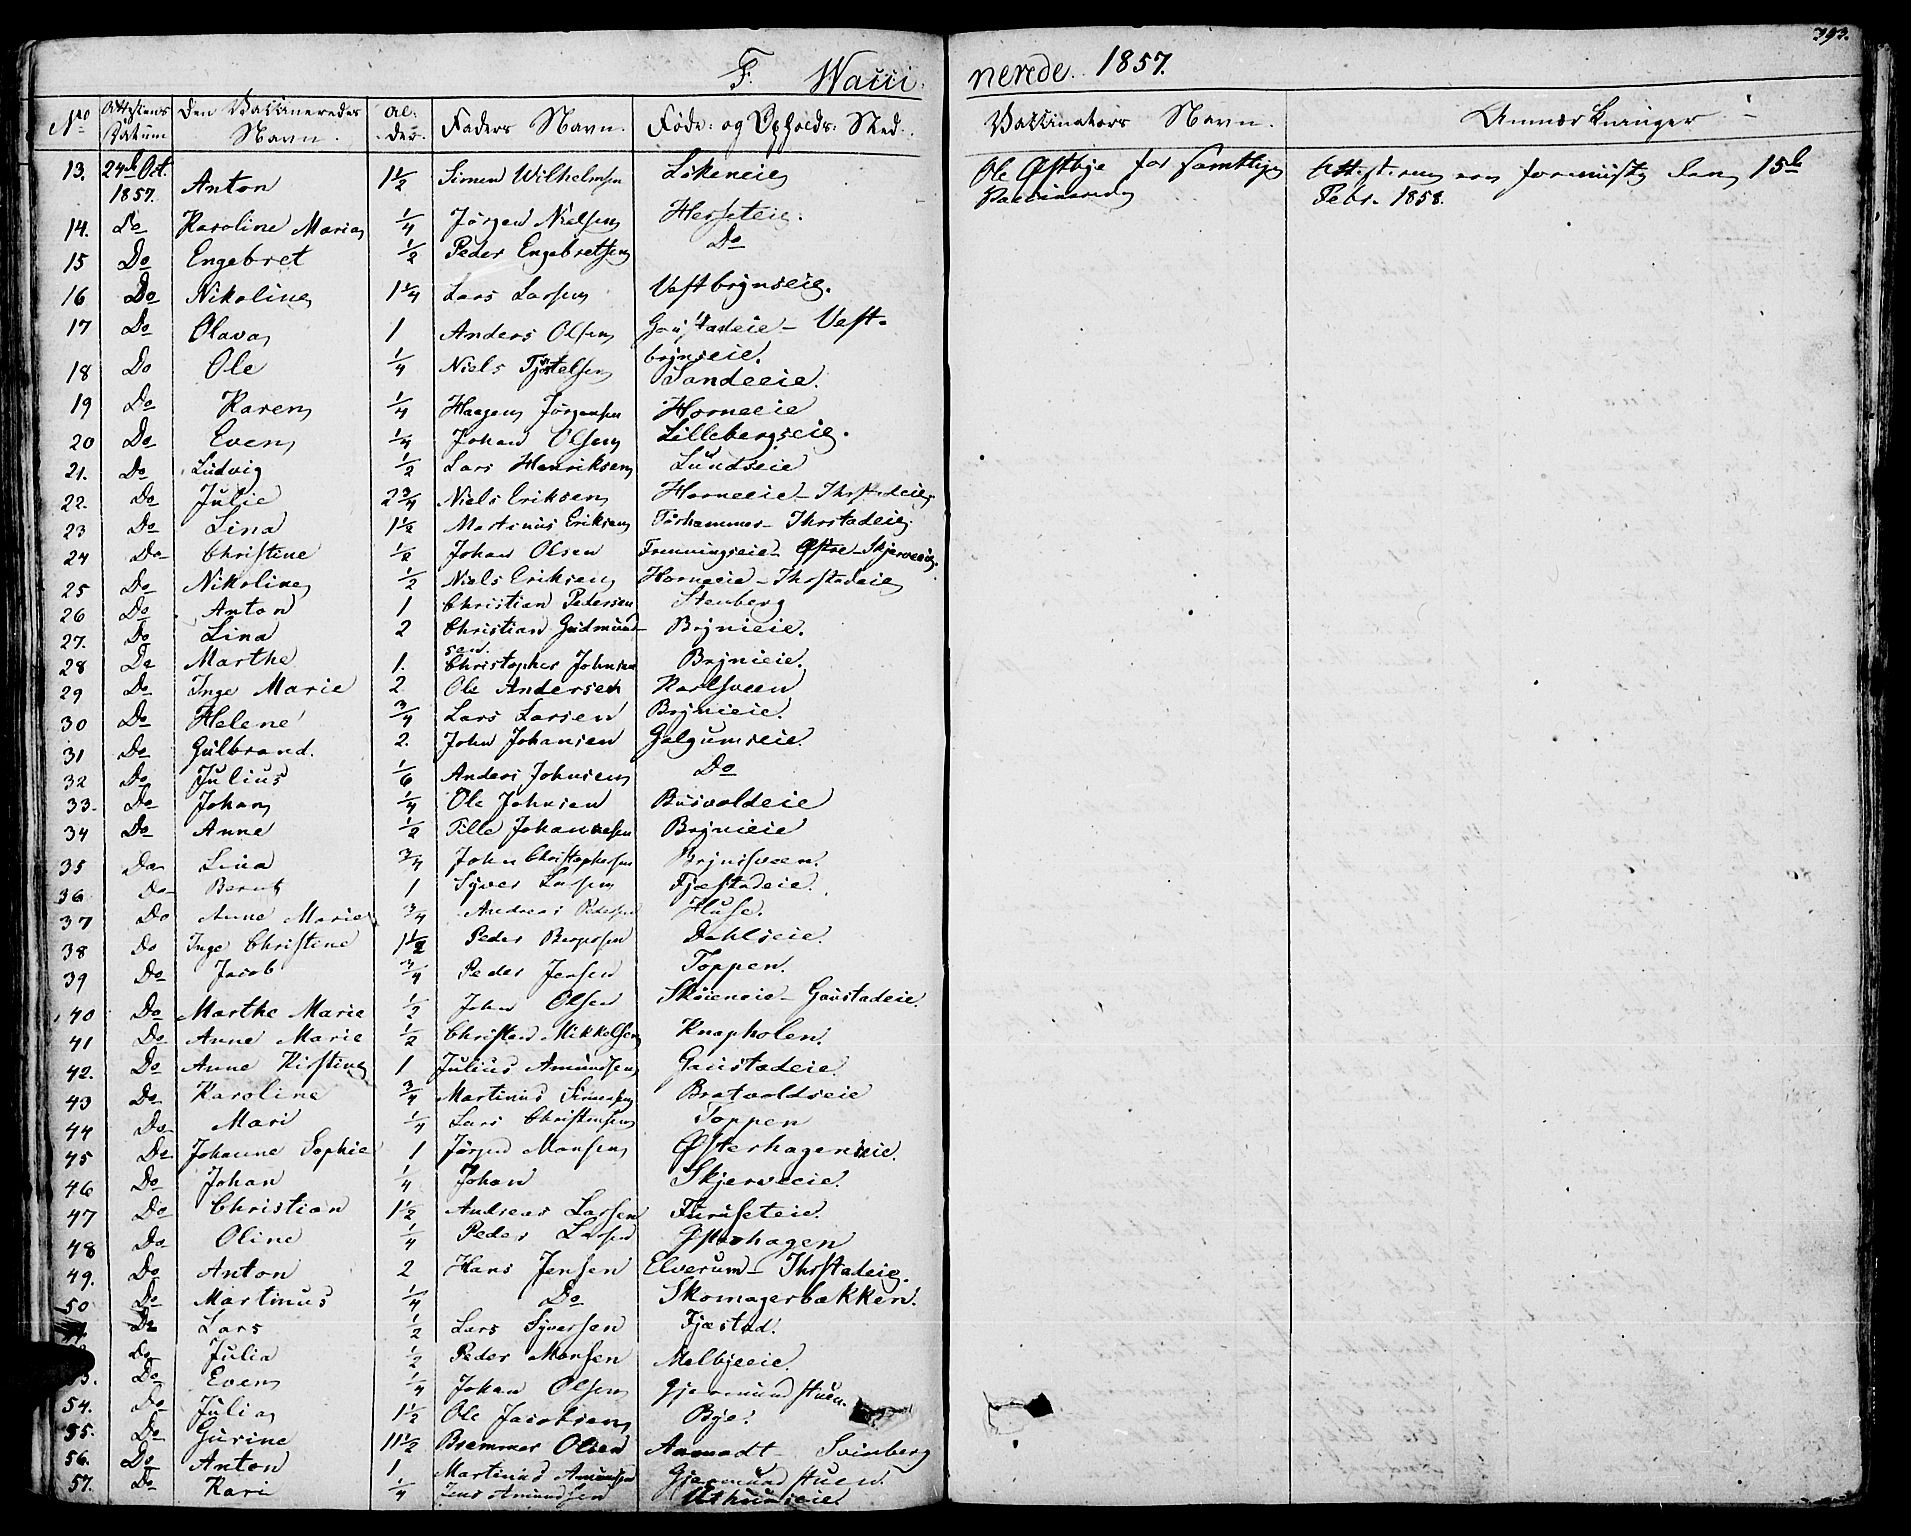 F. Wacci-
nerede. 1857.
393.
No Attestens Datum Den Vaccineredes Navn. Al-der. Faders Navn. Føde- og Opholds-Sted. Vaccinators Navn. Anmærkninger
13. 24de Oct. 1857. Anton 1½ Simen Wilhelmsen Løkeneie Ole Østbye for samtlige Vaccinerede Attesterne ere 15de Febr. 1858.
14. Do Karoline Marie ¼ Jørgen Nielsen
15 Do Engebret ½ Peder Engebretsen Do
16 Do Nikoline 1¼ Lars Larsen Vestbynseie.
17 Do Olava 1 Anders Olsen Gaustadeie - Vest-
bynseie.
18 Do Ole ¼ Niels Sandeeie.
19 Do Karen ¼ Haagen Jørgensen Horneeie
20 Do Even ¼ Johan Olsen Lillebergseie.
21. Do Ludvig ½ Lars Henriksen Lundseie
22. Do Julie 2¾ Niels Eriksen Horneeie - Thrstadeie
23 Do Lina 1½ Martinus Eriksen Torhammer - Thrstadeie
24 Do Christine ½ Johan Olsen Frenningseie - Østre-Skjerveeie.
25 Do Nikoline ½ Niels Eriksen Horneeie - Thrstadeie
26 Do Anton 1 Christian Pedersen Stenberg
27. Do Lina 2 Christian Gudmund-
sen. Brynieie.
28 Do Marthe 1. Christopher Johnsen Brynieie.
29 Do Inge Marie 2. Ole Andersen Karlsveen
30 Do Helene ¾ Lars Larsen Brynieie.
31 Do Gulbrand. 2. John Johansen Galgumseie.
32 Do Julius 1/6 Anders Johnsen Do
33. Do Johan ¼ Ole Johnsen Busvoldeie
34 Do Anne ½ Tille Johannesen Brynieie
35 Do Lina ¾ John Christophersen Brynisveen.
36 Do Bernt 1 Syver Larsen Fjæstadeie.
37 Do Anne Marie ¾ Andreas Pedersen Huse.
38 Do Inge Christine 1½ Peder Dahlseie.
39 Do Jacob ¾ Peder Jensen Toppen.
40 Do Marthe Marie ½ John Olsen Skøieneie - Gaustadeie.
41 Do Anne Marie ½ Christen Mikkelsen Knapholen.
42. Do Anne Kirstine 1 Julius Amundsen Gaustadeie.
43 Do Karoline ¾ Martinus Simensen Bratvoldseie
44 Do Mari ¼ Lars Christensen Toppen
45 Do Johanne Sophie 1 Jørgen Monsen Østerhagenseie.
46 Do Johan ¼ Johan Skjerveeie.
47 Do Christian 1½ Andreas Larsen Furuseteie.
48 Do Oline ¼ Peder Larsen Østerhagen
49. Do Anton 2 Hans Jensen Elverum - Thrstadeie.
50 Do Martinus ¼ Do Skomagerbækken.
Do Lars ½ Lars Syversen Fjæstad.
Do Julia ½ Peder Monsen Melbyeeie.
53. Do Even ¼ Johan Olsen Gjermundstuen.
54. Do Julia 1½ Ole Jacobsen Bye.
55. Do Gurine 11½ Bremmer Olsen Aamodt Svinberg
56. Do Anton 1 Martinus Amundsen Gjermundstuen.
57. Do Kari ¼ Jens Amundsen